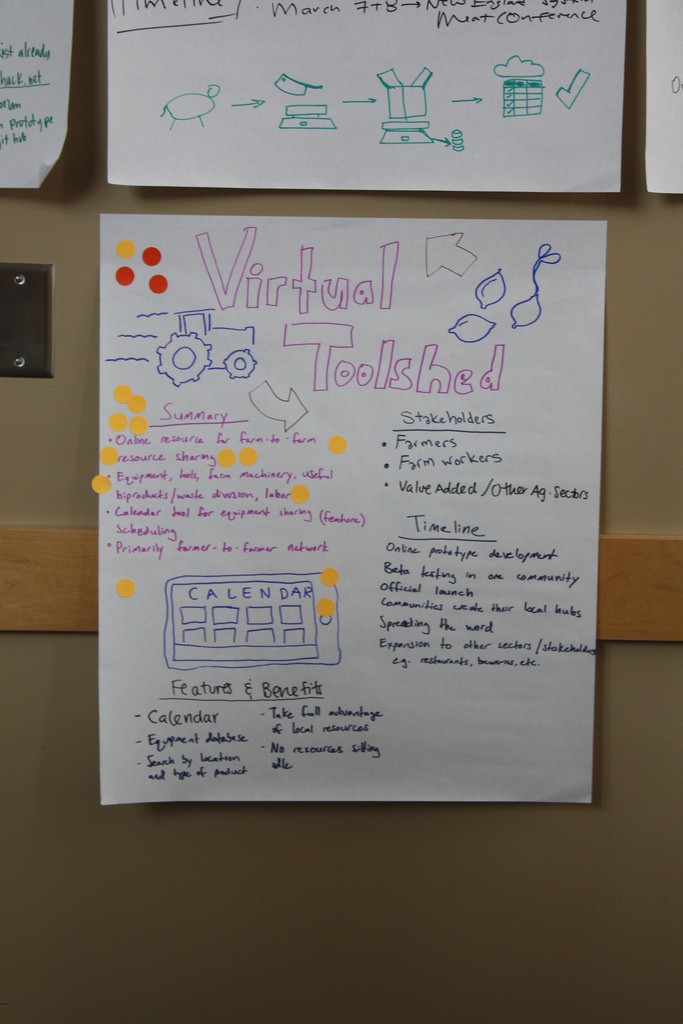 Timeline / · March 7+8 → New England
Meat Conference
ist already
hack.net
orum
n prototype
git hub
Virtual
Toolshed
Summary
• Online resource for farm-to-farm
resource sharing
• Equipment, tools, farm machinery, useful
biproducts/waste division, labor
• Calendar tool for equipment sharing (feature)
scheduling
• Primarily farmer-to-farmer network
Stakeholders
• Farmers
• Farm workers
• Value Added/Other Ag. Sectors
Timeline
Online prototype development
Beta testing in one community
Official launch
Communities create their local hubs
Spreading the word
Expansion to other sectors/stakeholders
e.g. restaurants, breweries, etc.
CALENDAR
Features & Benefits
- Calendar
- Equipment database
- Search by location
and type of product
- Take full advantage
of local resources
- No resources sitting
idle